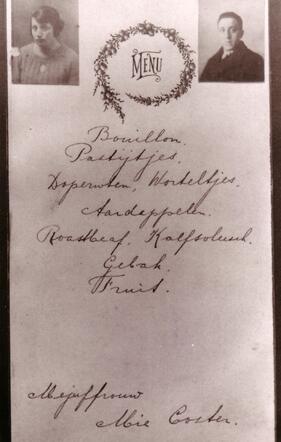 MENU
Bouillon.
Pastijtjes.
Doperwten, Worteltjes.
Aardappelen.
Roastbeaf, Kalfsvleesch.
Gebak.
Fruit.
Mejuffrouw
Mie Coster.